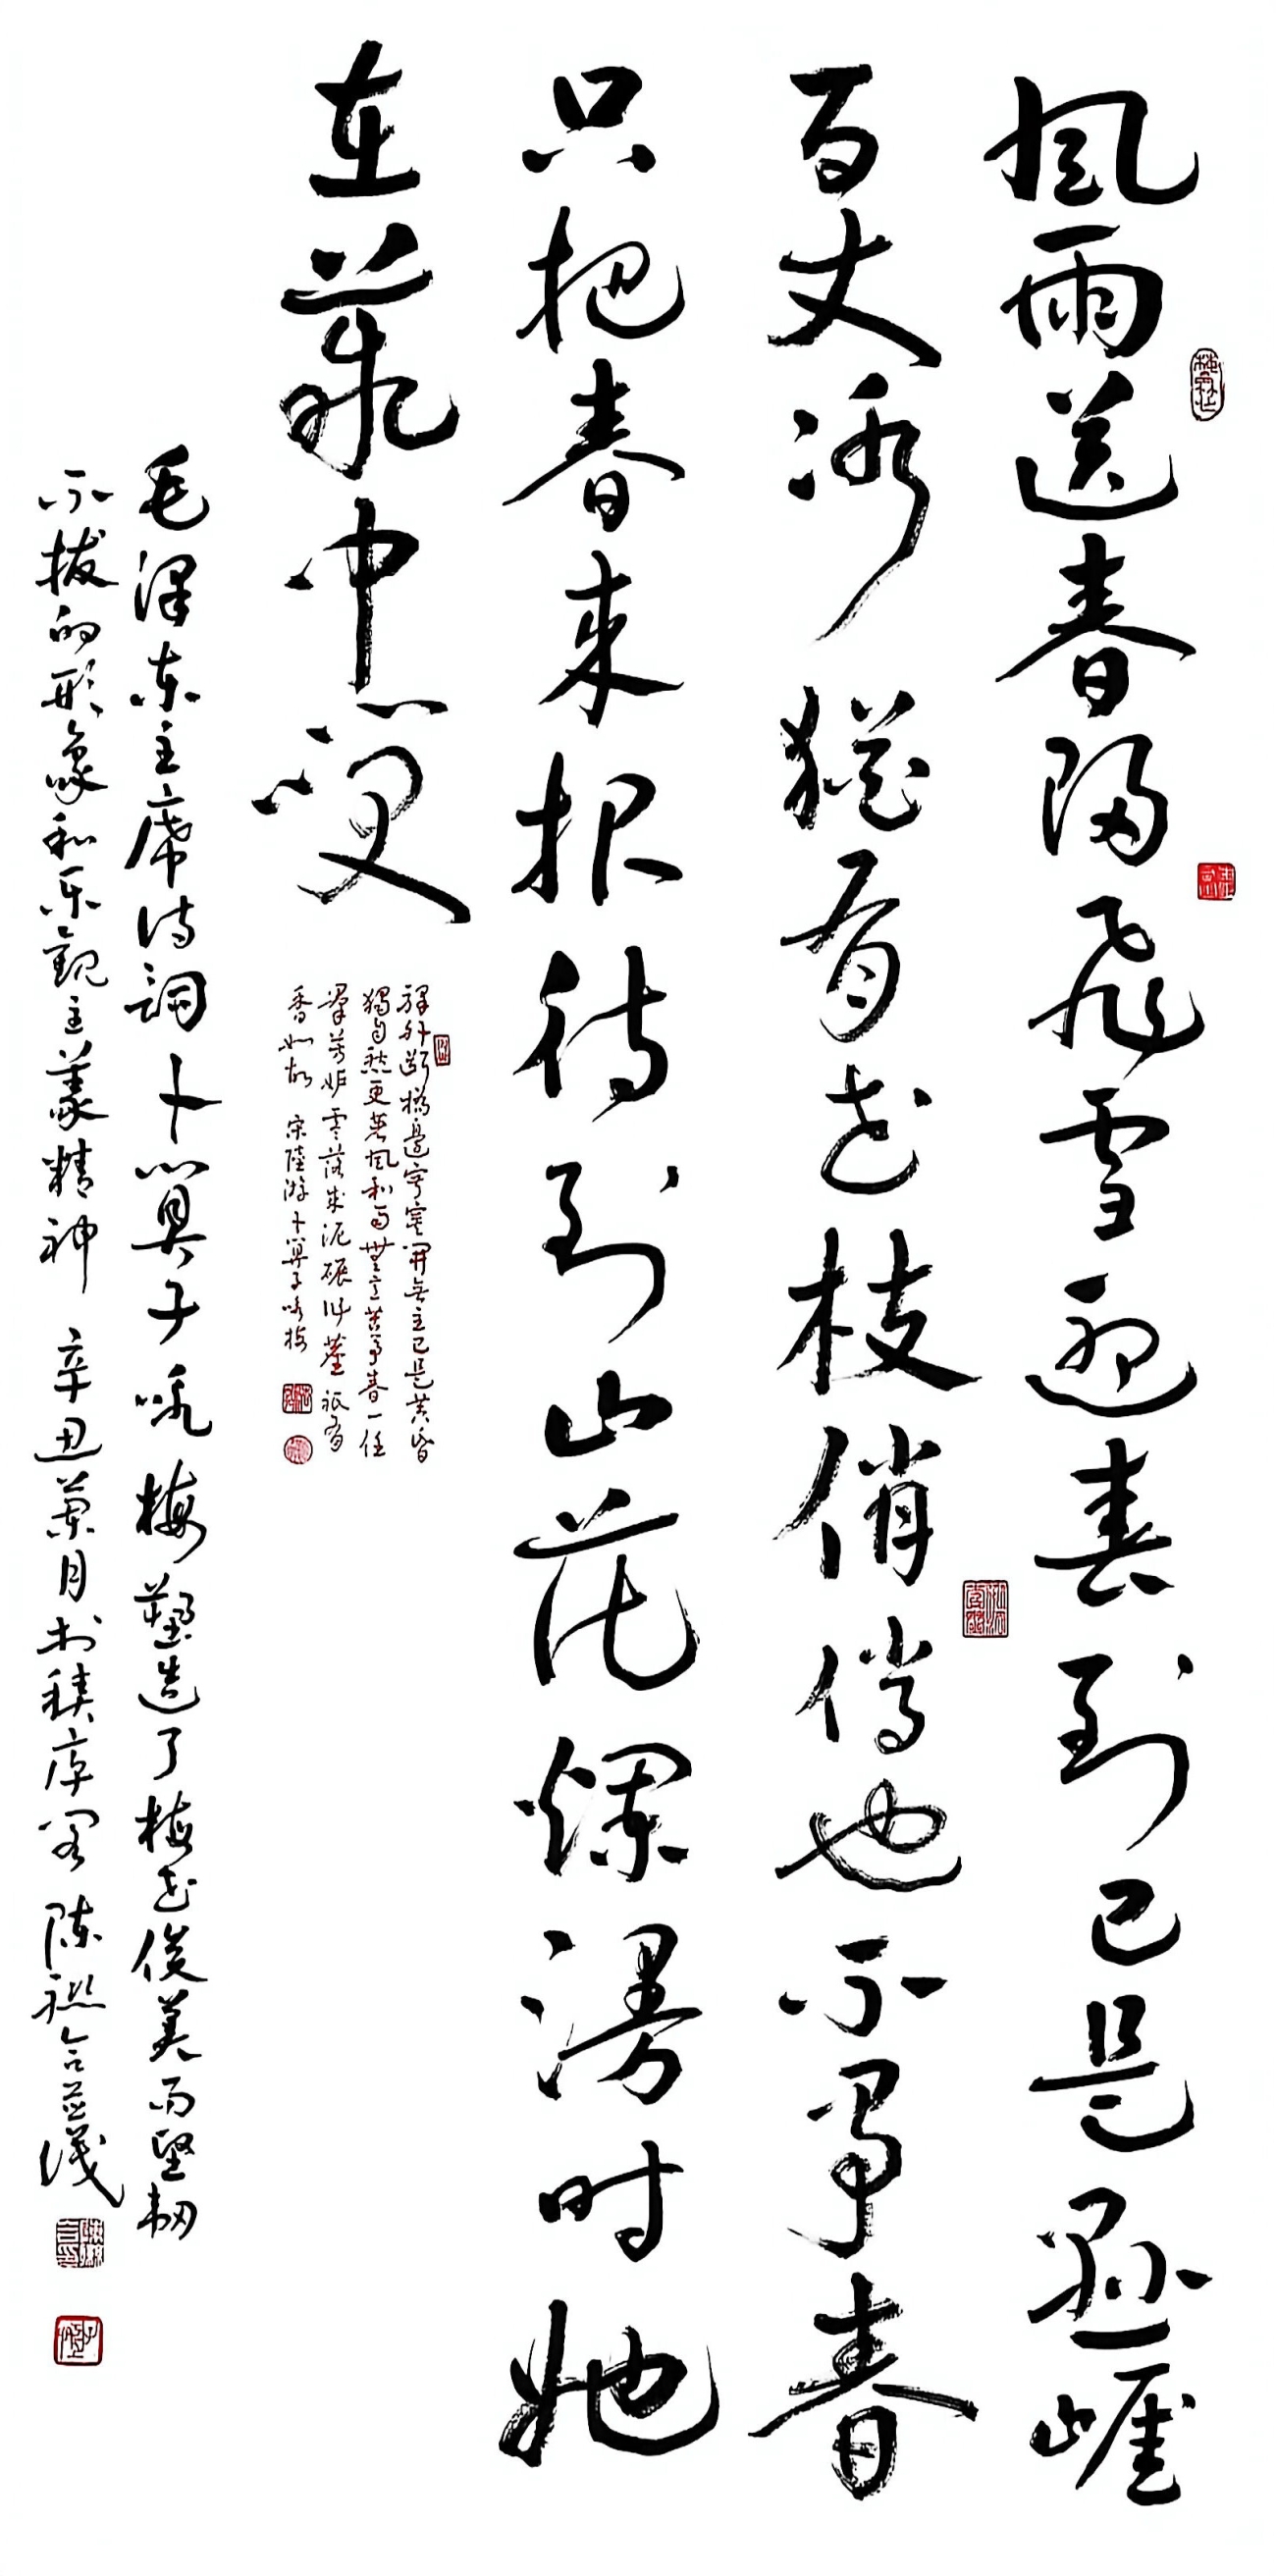 風雨送春歸飛雪迎春到已是懸崖
百丈冰猶有花枝俏俏也不爭春
只把春來報待到山花爛漫时她
在叢中笑
驛外斷橋邊寂寞開無主已是黃昏
獨自愁更著風和雨無意苦爭春一任
羣芳妒零落成泥碾作塵祇有
香如故 宋陸游卜算子咏梅
毛澤东主席诗詞卜算子咏梅塑造了梅花俊美而堅韧
不拔的形象和乐觀主義精神 辛丑蘭月於積 陈言並識